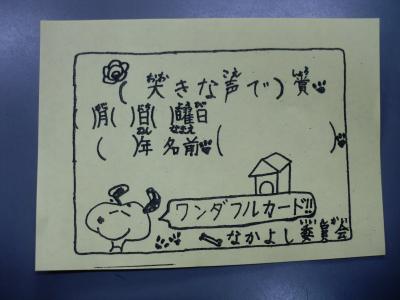 (大きな声で)賞
( )月( )日( )曜日
( )年 名前( )
ワンダフルカード!!
なかよし委員会